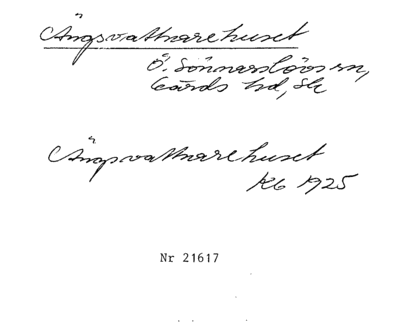 Ängsvattnarehuset
Ö. Sönnarslövs sn,
Gärds hd, Sk
Ängsvattnarehuset
Kb 1925
Nr 21617